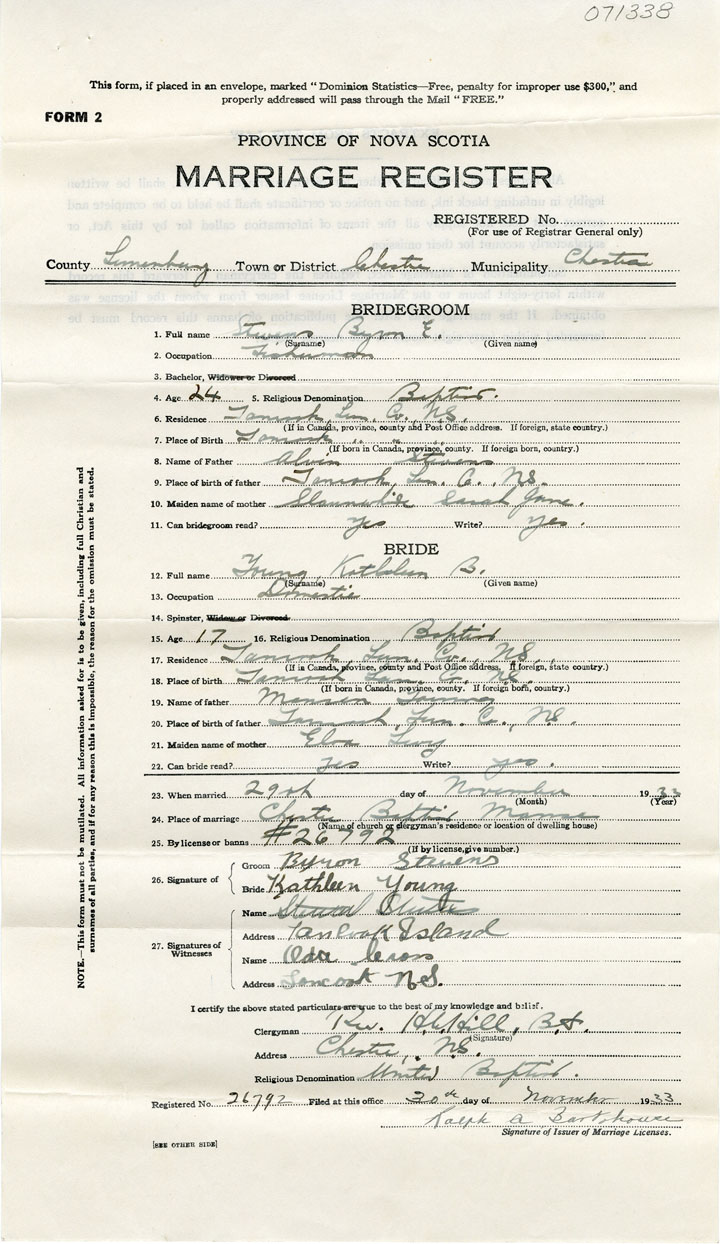 071338
This form, if placed in an envelope, marked "Dominion Statistics—Free, penalty for improper use $300," and
properly addressed will pass through the Mail "FREE."
FORM 2
PROVINCE OF NOVA SCOTIA
MARRIAGE REGISTER
REGISTERED No.
(For use of Registrar General only)
County Lunenburg Town or District Chester Municipality Chester
BRIDEGROOM
1. Full name Stevens Byron E.
(Surname) (Given name)
2. Occupation Fisherman
3. Bachelor, Widower or Divorced
4. Age 24 5. Religious Denomination Baptist.
6. Residence Tancook, Lun. Co. N.S.
(If in Canada, province, county and Post Office address. If foreign, state country.)
7. Place of Birth Tancook " " "
(If born in Canada, province, county. If foreign born, country.)
8. Name of Father Alvin Stevens
9. Place of birth of father Tancook, Lun. C. N.S.
10. Maiden name of mother Slaunwhite Sarah Jane.
11. Can bridegroom read? yes Write? yes.
BRIDE
12. Full name Young, Kathleen B.
(Surname) (Given name)
13. Occupation Domestic
14. Spinster, Widow or Divorced
15. Age 17 16. Religious Denomination Baptist
17. Residence Tancook, Lun. Co., N.S.
(If in Canada, province, county and Post Office address. If foreign, state country.)
18. Place of birth Tancook Lun. Co. N.S.
(If born in Canada, province, county. If foreign born, country.)
19. Name of father Young
20. Place of birth of father Tancook, Lun. C., N.S.
21. Maiden name of mother Levy
22. Can bride read? yes Write? yes.
23. When married 29th day of November 1933
(Month) (Year)
24. Place of marriage Chester Baptist Manse
(Name of church or clergyman's residence or location of dwelling house)
25. By license or banns #26792
(If by license, give number.)
26. Signature of
Groom Byron Stevens
Bride Kathleen Young
27. Signatures of Witnesses
Name
Address Tancook Island
Name
Address Tancook N.S.
I certify the above stated particulars are true to the best of my knowledge and belief.
Clergyman Rev. Hill,
(Signature)
Address Chester, N.S.
Religious Denomination United Baptist.
Registered No. 26792 Filed at this office 30th day of November 1933
Ralph A Barkhouse
Signature of Issuer of Marriage Licenses.
[SEE OTHER SIDE]
NOTE.—This form must not be mutilated. All information asked for is to be given, including full Christian and
surnames of all parties, and if for any reason this is impossible, the reason for the omission must be stated.